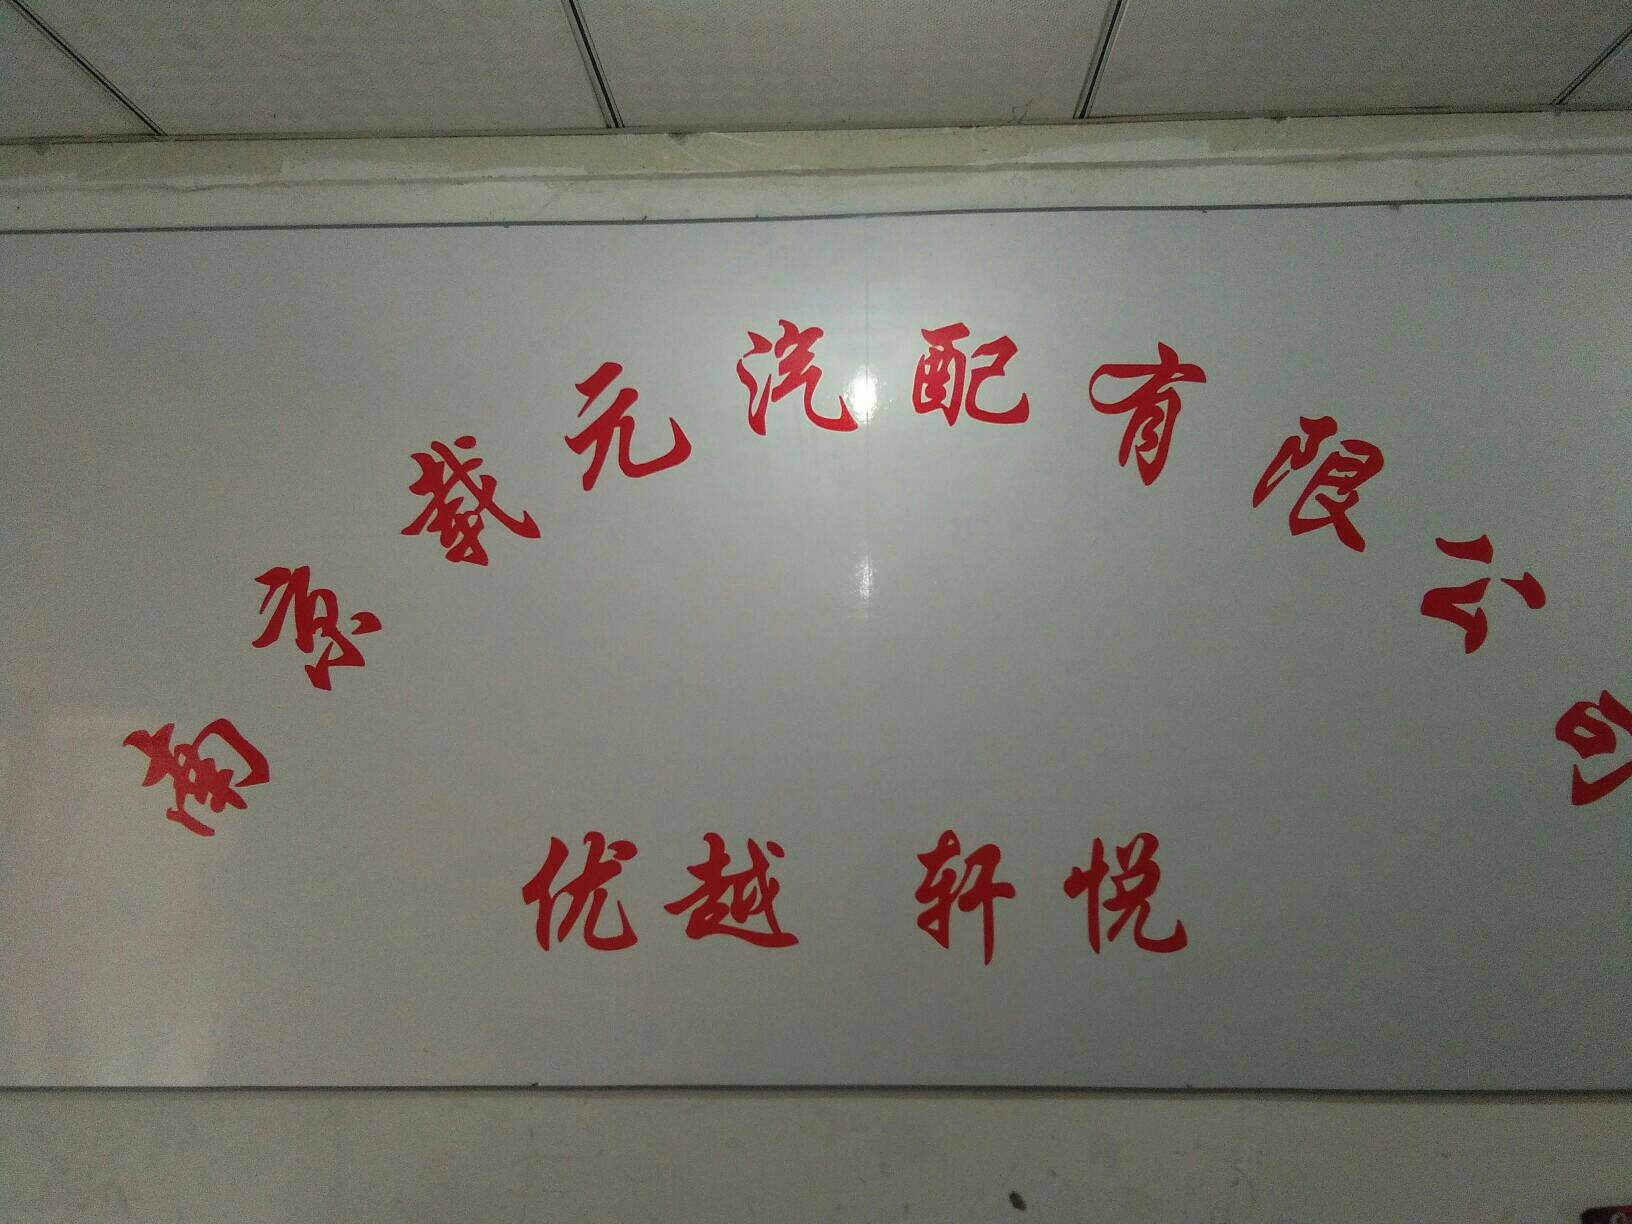 南京戴元汽配有限公司
优越 轩悦